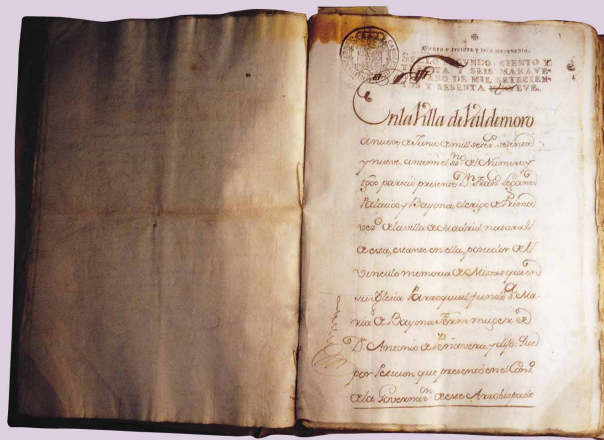 Ciento y treinta y seis maravedis.
SELLO SEGUNDO, CIENTO Y
TREINTA Y SEIS MARAVE-
AÑO DE MIL SETECIEN-
TOS Y SESENTA NUEVE.
En la Villa de Valdemoro
a nueve de Junio de mill setecs sesenta
y nueve, ante mi el ssno de el Numero, y
tgos parecio presente Dn Juan
Palacios y Bayona, clerigo de Primª
vezº de la villa de Madrid natural de
de esta, estante en ella, poseedor de el
Vinculo memoria de Misas que en
su Yglesia Parroquial fundo Dª Ma
ria de Bayona muger de
Dn Antonio de Peñavera, y dijo: Que
por Peticion que presento en el Consº
de la Governazon de este Arzobispado